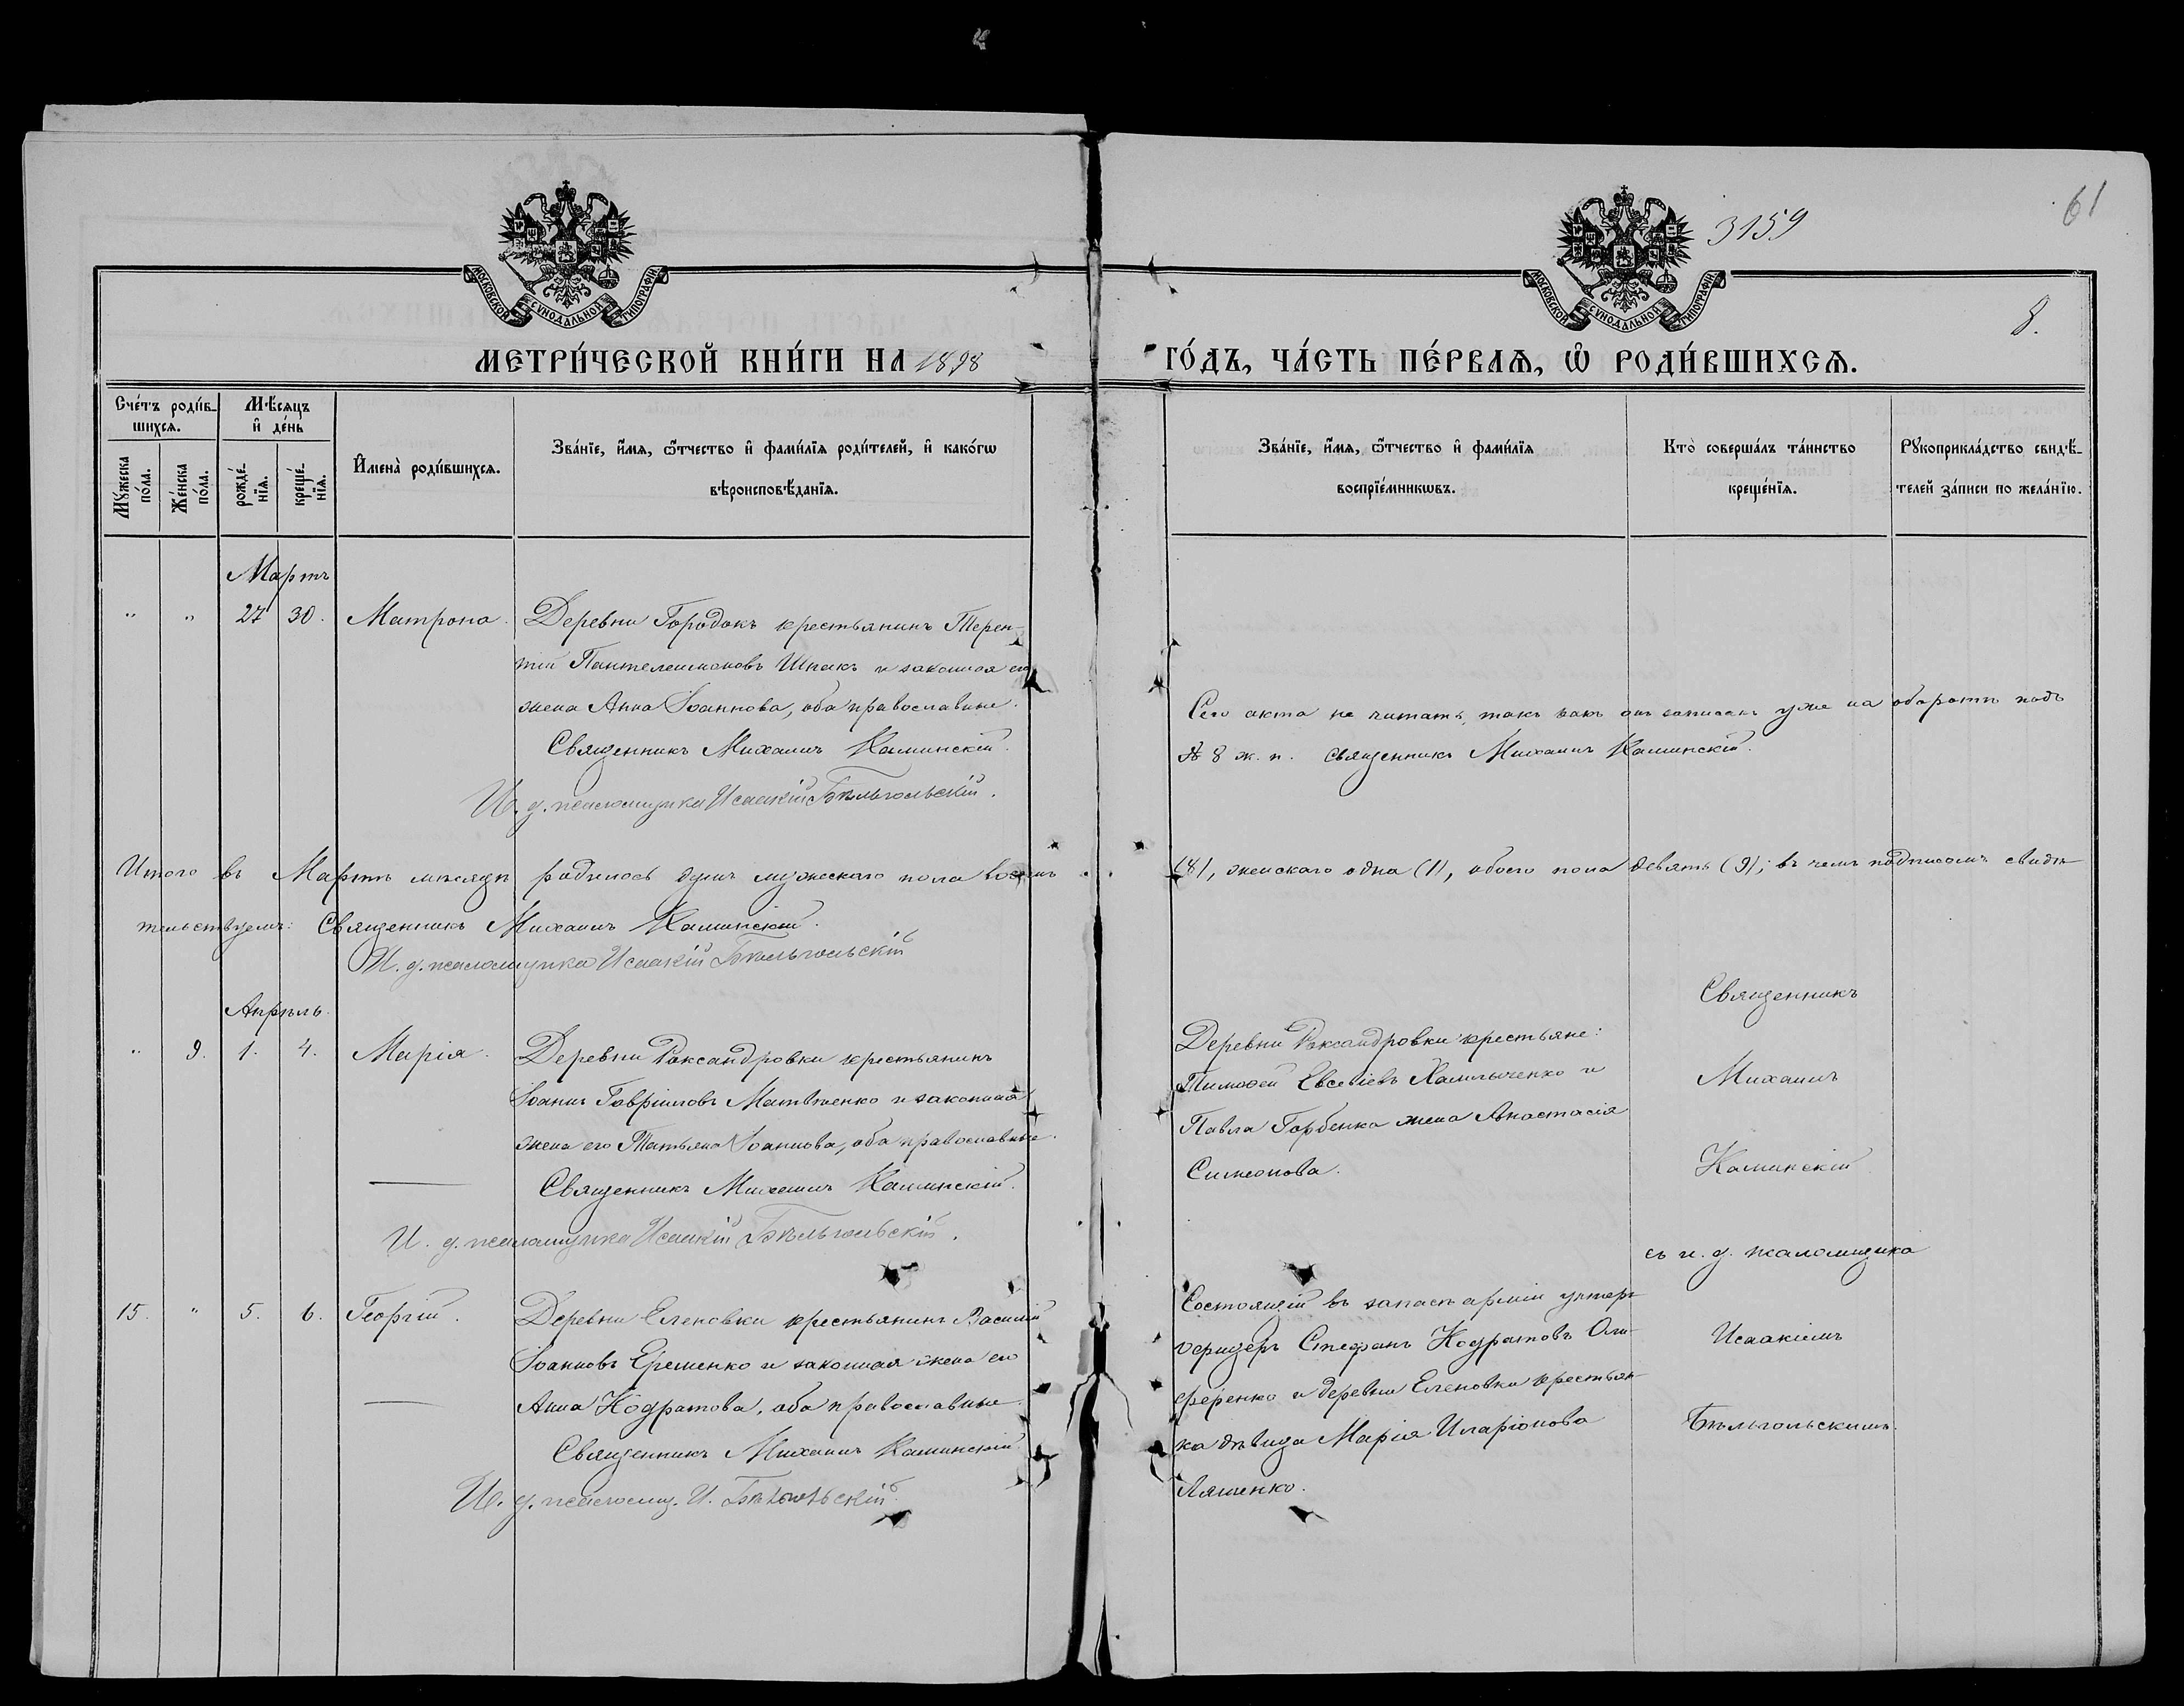 3159
61
8.
МОСКОВСКОЙ СУНОДАЛЬНОЙ ТИПОГРАФІИ
МОСКОВСКОЙ СУНОДАЛЬНОЙ ТИПОГРАФІИ
МЕТРИ́ЧЕСКОЙ КНИ́ГИ НА 1898
ГО́ДЪ, ЧА́СТЬ ПЕ́РВАѦ, Ѡ РОДИ́ВШИХСѦ.
Сче́тъ роди́в-
шихсѧ.
Мꙋ́жеска
по́ла.
Же́нска
по́ла.
Мѣ́сѧцъ
и҆ де́нь
рожде́-
нїѧ.
креще́-
нїѧ.
И҆мена̀ роди́вшихсѧ.
Зва́нїе, и҆́мѧ, ѻ҆́тчество и҆ фами́лїѧ роди́телей, и҆ како́гѡ
вѣроисповѣ́данїѧ.
Зва́нїе, и҆́мѧ, ѻ҆́тчество и҆ фами́лїѧ
воспрїе́мникѡвъ.
Кто̀ соверша́лъ та́инство
креще́нїѧ.
Рꙋкоприкла́дство свидѣ́-
телей за́писи по жела́нїю.
Мартъ
" " 27 30. Матрона. Деревни Городокъ крестьянинъ Терен-
тій Пантелеимоновъ Шпакъ и законная его
жена Анна Іоаннова, оба православные.
Священникъ Михаилъ Каминскій.
И. д. псаломщика Исаакій Бѣльгольскій.
Сего акта не читать, такъ какъ онъ записанъ уже на оборотѣ подъ
№ 8 ж. п. Священникъ Михаилъ Каминскій.
Итого въ Мартѣ мѣсяцѣ родилось душъ мужескаго пола восемь
(8), женскаго одна (1), обоего пола девять (9); въ чемъ подписомъ свидѣ-
тельствуемъ: Священникъ Михаилъ Каминскій.
И. д. псаломщика Исаакій Бѣльгольскій
Апрѣль.
" 9. 1. 4. Марія. Деревни Роксандровки крестьянинъ
Іоаннъ Гавріиловъ Матвѣенко и законная
жена его Татьяна Іоаннова, оба православные.
Священникъ Михаилъ Каминскій.
И. д. псаломщика Исаакій Бѣльгольскій.
Деревни Роксандровки крестьяне:
Тимофей Евсевіевъ Хамльченко и
Павла Горбенка жена Анастасія
Симеонова.
Священникъ
Михаилъ
Каминскій
съ и. д. псаломщика
Исаакіемъ
Бѣльгольскимъ.
15. " 5. 6. Георгій. Деревни Еленовки крестьянинъ Василій
Іоанновъ Еременко и законная жена его
Анна Кодратова, оба православные.
Священникъ Михаилъ Каминскій
И. д. псаломщ. И. Бѣльгольскій.
Состоящій въ запасѣ арміи унтеръ-
офицеръ Стефанъ Кодратовъ Оли-
ференко и деревни Еленовки крестьян-
ка дѣвица Марія Иларіонова
Ляшенко.